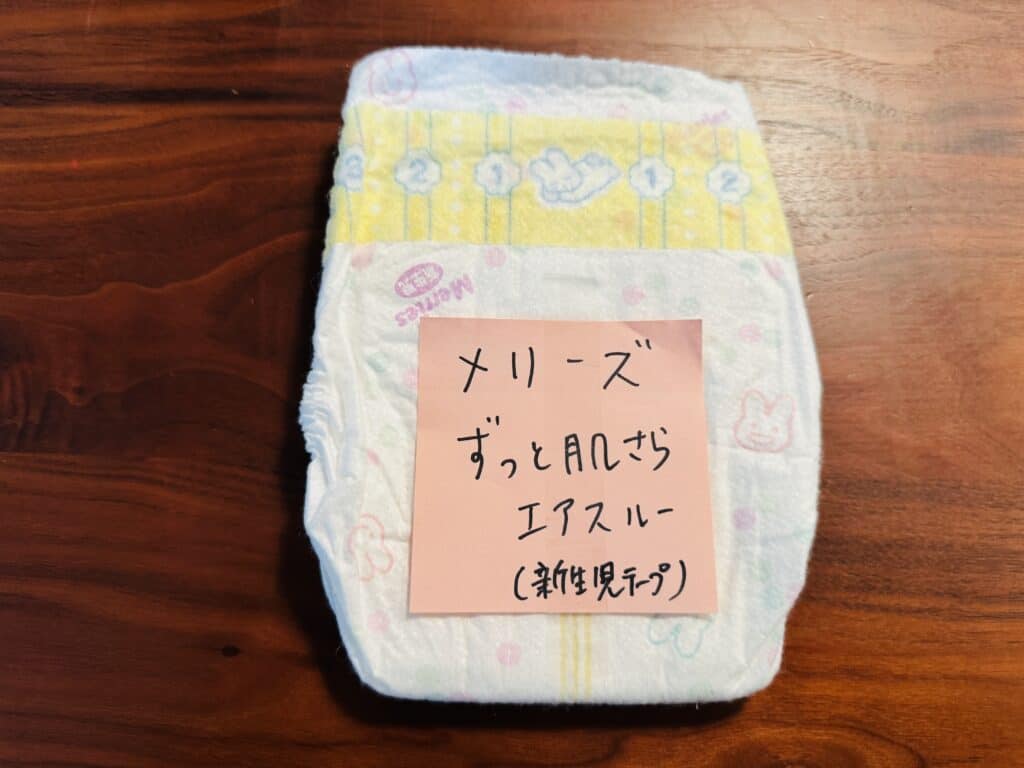 3 2 1 1 2
Merries
メリーズ
ずっと肌さら
エアスルー
(新生児テープ)